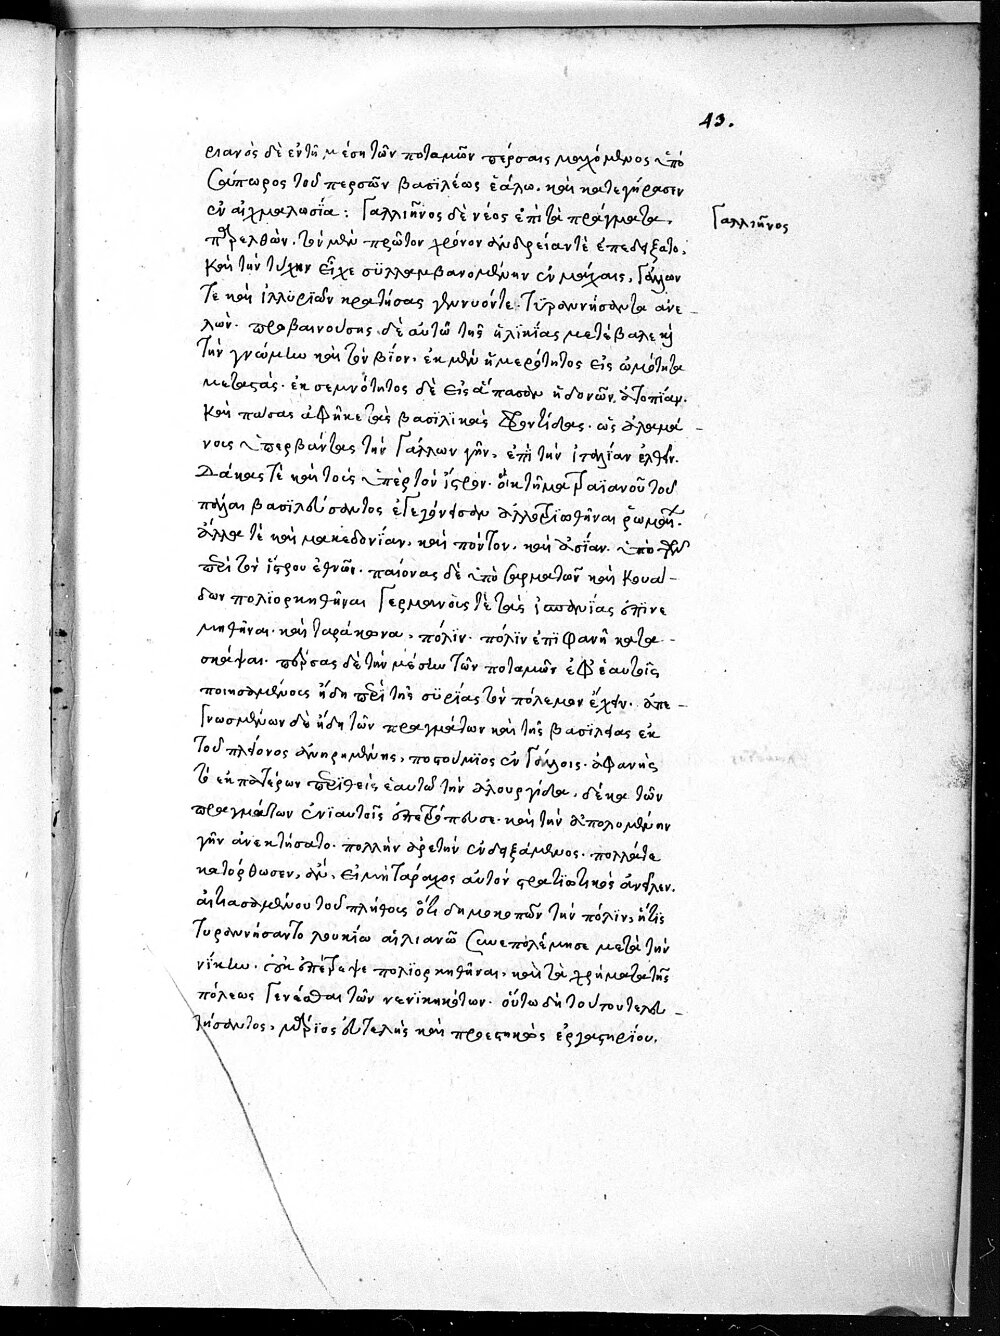 43.
ριανὸς δὲ ἐν τῆ μέση τῶν ποταμῶν πέρσαις μαχόμενος ὑπὸ
Σαπωρος τοῦ περσῶν βασϊλέως ἑάλω. καὶ κατεγήρασεν
ἐν αἰχμαλωσία: Γαλλιῆνος δὲ νέος ἐπὶ τὰ πράγματα
Γαλλιῆνος
παρελθὼν. τὸν μὲν πρῶτον χρόνον ἀνδρείαν τὲ ἐπεδείξατο.
καὶ τὴν τύχην εἶχε συλλαμβανομένην ἐν μάχαις. Γάλλων
τε καὶ ἰλλυρϊῶν κρατήσας γϊνγυόντε. Τυραννήσαντα ἀνε-
λών. προβαινούσης δὲ αὐτῶ τῆς ἡλϊκΐας μετέβαλε καὶ
τὴν γνώμην καὶ τὸν βΐον. ἐκ μὲν ἡμερότητος εἰς ὠμότητα
μεταστὰς. ἐκ σεμνότητος δὲ εἰς ἅπασαν ἡδονῶν ἀτοπίαν.
καὶ πάσας ἀφῆκε τὰς βασϊλϊκὰς φροντίδας. ὡς ἀλαμα-
νοις ὑπερβάντας τὴν Γάλλων γῆν, ἐπὶ τὴν ἰταλίαν ἐλθεῖν.
Δάκας τὲ καὶ τοὺς ὑπὲρ τὸν ἴστρον. οἳ κτῆμα Τραϊανοῦ τοῦ
πάλαι βασϊλεύσαντος ἐγεγόνησαν ἀλλοτριωθῆναι ῥωμαί.
ἀλλά τὲ καὶ μακεδονΐαν, καὶ πόντον, καὶ ἀσΐαν. ὑπὸ τῶν
περὶ τὸν ἴστρον ἐθνῶν. παίονας δὲ ὑπὸ Σαρματῶν καὶ Κουα-
δων πολϊορκηθῆναι Γερμανοῖς τὲ τὰς ἱσπανΐας ἐπινε
μηθῆναι. καὶ ταράκωνα, πόλϊν. πόλϊν ἐπϊφανῆ κατα-
σκάψαι. πέρσας δὲ τὴν μέσην τῶν ποταμῶν ἐφ' ἑαυτοῖς
ποιησαμένοις ἤδη περὶ τῆς συρΐας τὸν πόλεμον ἔχειν. ἀπε-
Γνωσμένων δὲ ἤδη τῶν πραγμάτων καὶ τῆς βασϊλείας ἐκ
τοῦ πλείονος ἀνηρημένης, ποστούμϊος ἐν Γάλλοις. ἀφανὴς
τὸ ἐκ πατέρων περϊθεὶς ἑαυτῶ τὴν ἁλουργίδα, δέκα τῶν
πραγμάτων ἐνϊαυτοῖς ἐπετρόπευσε. καὶ τὴν ἀπολομένην
γῆν ἀνεκτήσατο. πολλὴν ἀρετὴν ἐνδειξάμενος. πολλάτε
κατόρθωσεν, ἂν, εἰ μὴ τάραχος αὐτὸν στρατϊωτικὸς ἀνεῖλεν.
αἰτιασαμένου τοῦ πλήθους ὅτι δημοκοπῶν τὴν πόλϊν, ἥτις
τυραννήσαντο λουκίω αἰλιανῶ συνεπολέμησε μετὰ τὴν
νΐκην. οὐκ ἐπέτρεψε πολϊορκηθῆναι, καὶ τὰ χρήματα τῆς
πόλεως Γενέσθαι τῶν νενϊκηκότων. οὕτω δὴ τούτου τελευ-
τήσαντος, μάριος εὐτελὴς καὶ προεστηκὼς ἐργαστηρίου.